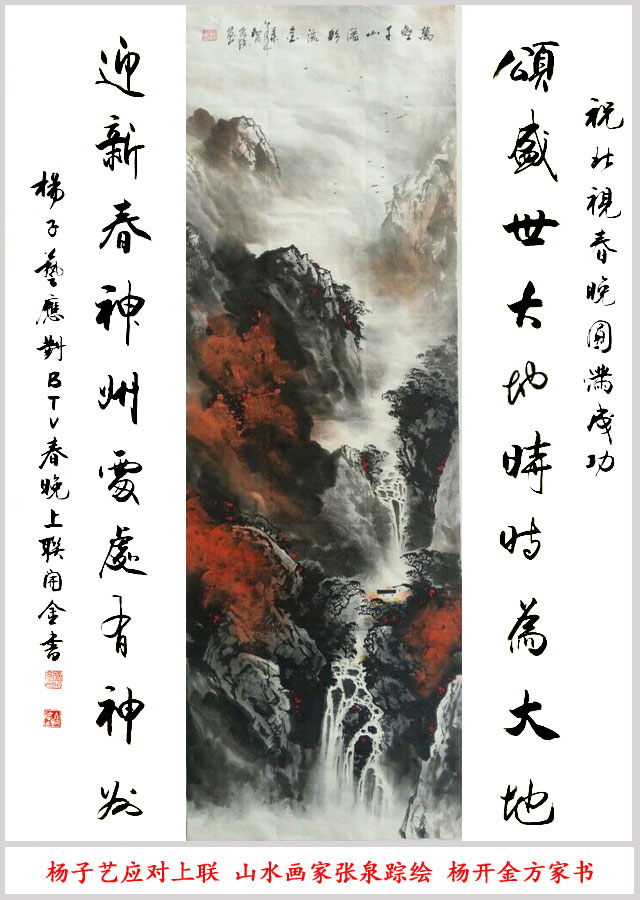 祝北視春晚圓滿成功
頌盛世大地時時為大地
萬壑千山溢彩流金
迎新春神州處處有神州
楊子藝應對BTV春晚上聯開金書
杨子艺应对上联 山水画家张泉踪绘 杨开金方家书